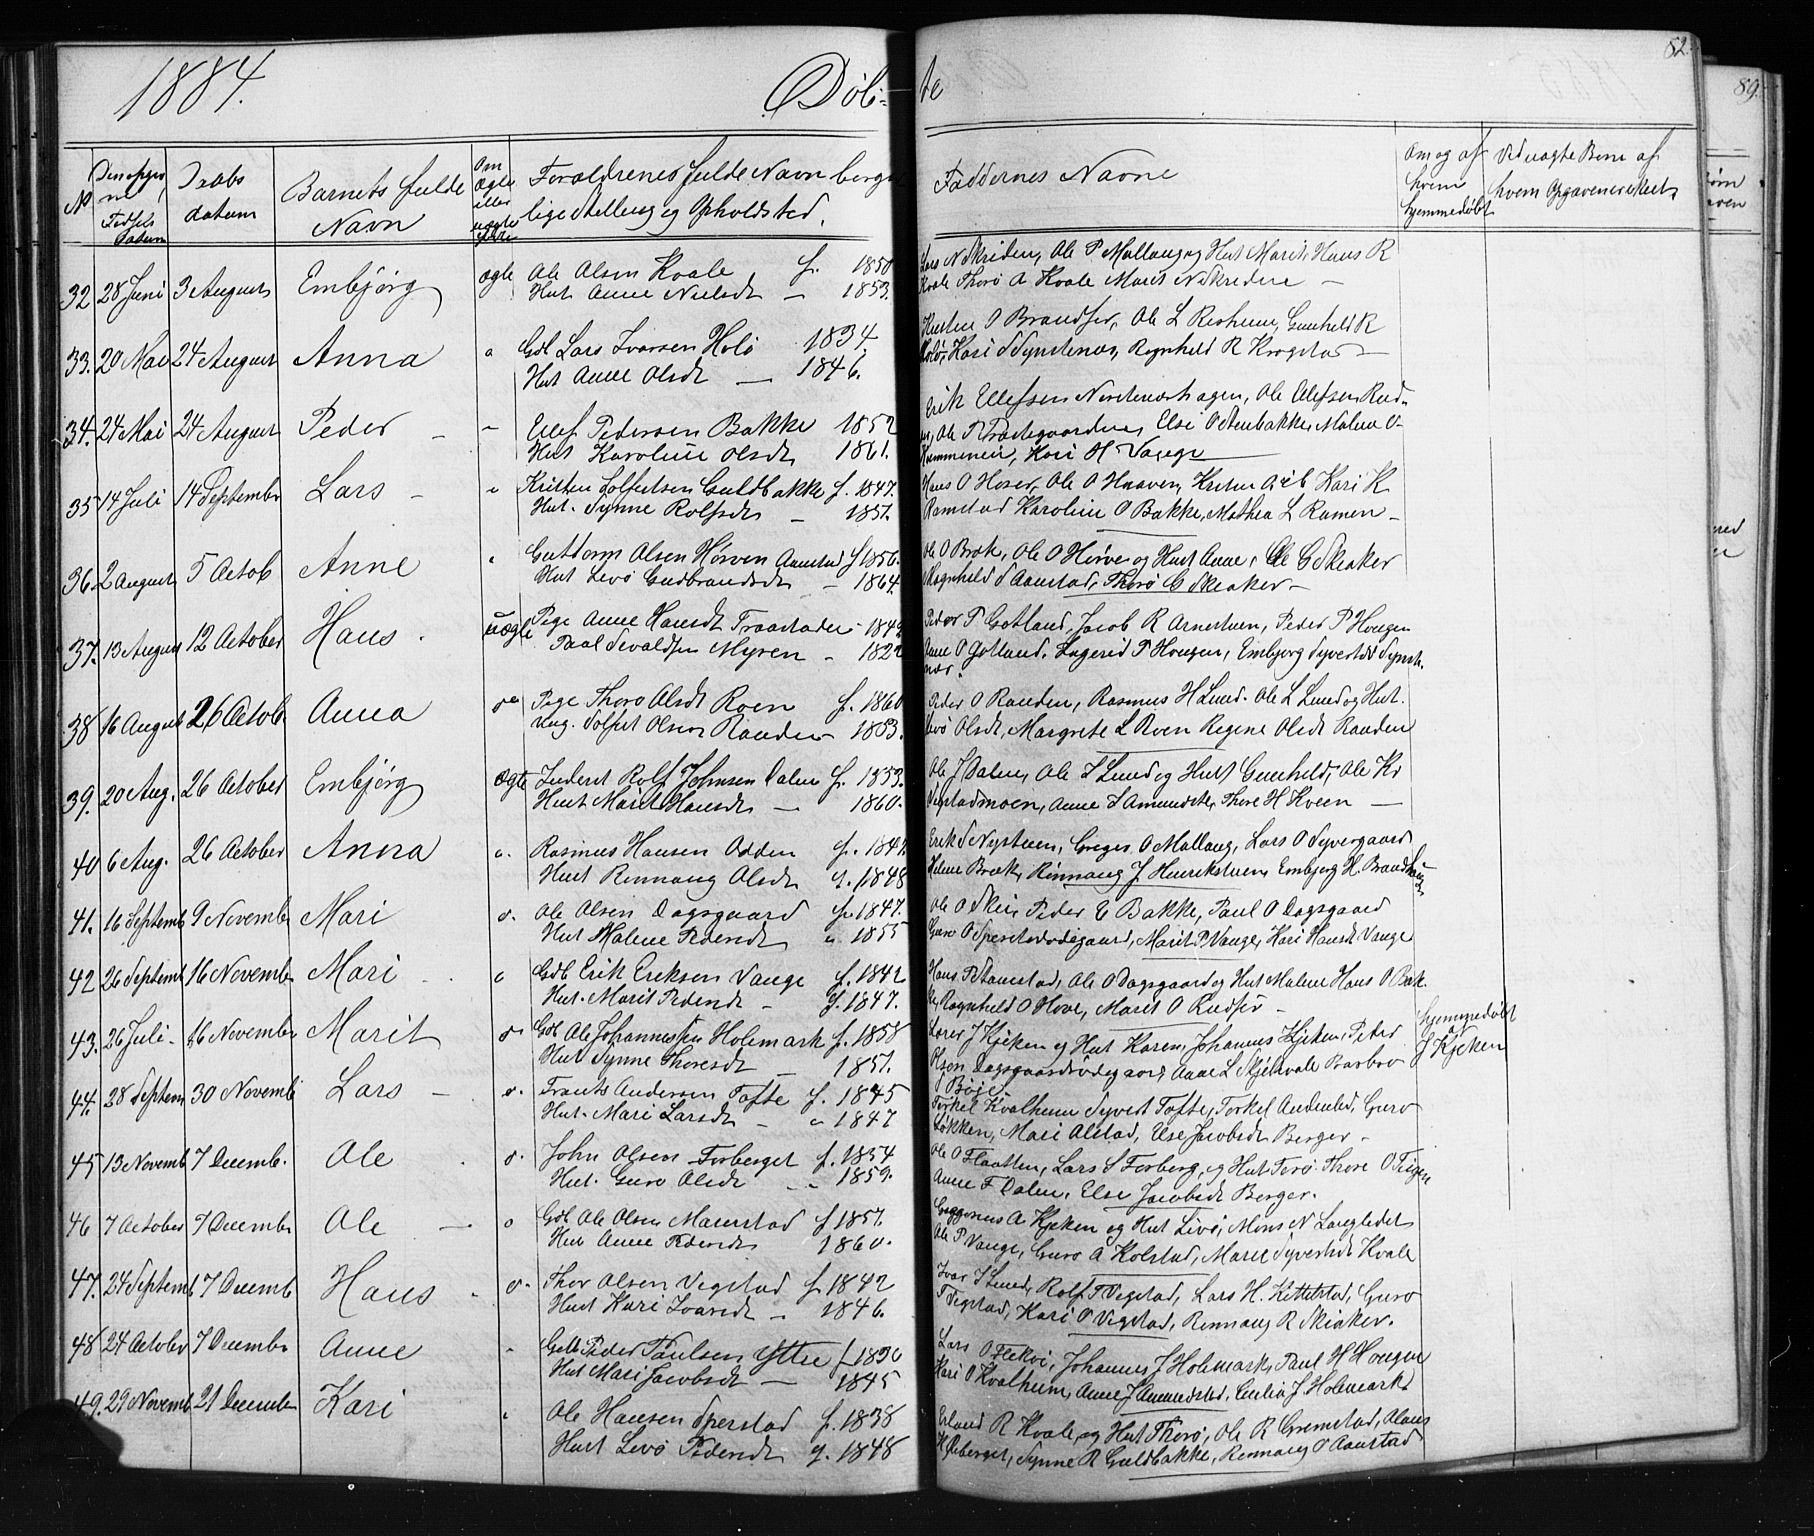 1884.
Döb-
te
82.
89.
No
Fødsels Datum
Daabs datum
Barnets fulde Navn
Om Ægte eller uægte
Forældrenes fulde Navn borger-
lige Stilling og Opholdsted.
Faddernes Navne
Om og af hvem hjemmedøbt
Ved uægte Børn af hvem Opgaven er skeet
32 28 Juni 3 August Embjörg ægte Ole Olsen Kvale f. 1850
Hut Anne Nielsdt — 1853.
Lars N Skriden, Ole P Mallang og Hut Marit, Hans R
Kvale Thorø A Kvale Marit N Skridere —
33. 20 Mai 24 August Anna Gdb Lars Ivarsen Holö 1834.
Hut Anne Olsdt — 1846.
O Brandser, Ole L Resheim, Gunhild R
Holö, Kari S Synstenæs, Rognheld R Krogstad —
34. 24 Mai 24 August Peder Ellef Pedersen Bakke 1852
Hut Karoline Olsdt 1861.
Erik Ellefsen Nordenæshagen, Ole Olefsen Rud-
Ole P Præstegaarden, Elsi O Stenbakke, Malene O
Kari H Vange
35 14 Juli 14 Septembr Lars Kristen Solfestsen Guldbakke f. 1847.
Hut. Synne Rolfsdt — 1851.
Hans O Hoser, Ole O Haaven, Kari K
Ramstad Karoline O Bakke, Mathea L Ramen —
36. 2 August 5 Octob Anne Guttorm Olsen Hörven Aanstad f 1856.
Hut Livö Gudbrandsdt — 1864.
Ole O Brok, Ole O Hörve og Hut Anne, Ole G Skeaker
Rognheld S Aanstad, Thorø G Skeaker —
37. 13 August 12 October Hans uægte Pige Anne Hansdt 1842
Paal Sevaldsen Myren — 182
Peder P Gotland, Jacob R Arnestuen, Peder P Hougen
Anne O Gotland. Ingerid P Hougen, Embjorg Syvertsdt Synste-
næs.
38 16 August 26 Octob. Anna Pige Thorø Olsdt Roen f. 1860
Ung. Solfest Olsen Randen — 1853.
Peder O Randen, Rasmus H Lund. Ole L Lund og Hut.
Livö Olsdt, Margrete L Roen Regine Olsdt Randen
39. 20 Aug. 26 October Embjörg Ægte Inderst Rolf Johnsen Dalen f. 1853.
Hut Marit Hansdt — 1860.
Ole J Dalen, Ole I Lund og Hut Gunheld, Ole K
Vegstadmoen, Anne I Amundste, Thore H Kveen —
40 6 Aug. 26 October Anna Rasmus Hansen Odden f. 1847.
Hut Rennaug Olsdt f. 1848
Erik S Nystuen, Greger O Mallang, Lars O Syvergaard
Helene Brœk, Rönnaug J Henrikstuen Embjorg H. Brand
41. 16 Septemb 9 Novembr Mari Ole Olsen Dagsgaard f. 1847.
Hut Malene Pedersdt " 1855
Ole O Skei, Peder E Bakke, Paul O Dagsgaard
Guro O Sperstadödegaard, Marit P Vange, Kari Hansdt Vange
42 26 Septemb 16 Novembr Mari Gdb Erik Eriksen Vange f. 1842
Hut. Marit Pedersdt — f. 1847.
Hans P Aanstad, Ole O Dagsgaard og Hut Malene Hans O Bak-
ke, Rognheld O Hove, Marit O Rudsö —
43. 26 Juli 16 Novembr Marit Gdb Ole Johannessen Holemark f. 1858
Hut Synne Thoresdt — 1851.
J Kjeken og Hut Karen, Johannes Kjeken, Peder
Olsen Dagsgaardsödegaard, Anne L Skjekvale Barbro
Böje
hjemmedøbt
af
J Kjeken
44. 28 Septem 30 Novemb Lars — Frants Andersen Tofte f. 1845
Hut. Mari Larsdt — " 1847
Torkel Kvalheim Syvert Tofte, Torkel Andersd, Guro
Lökken, Mari Alstad, Else Jacobsdt Berger —
45 13 Novemb 7 Decemb. Ole John Olsen Forberget f. 1854
Hut. Guro Olsdt — 1859.
Ole O Flaatten, Lars S Forberg, og Hut Torö. Thore O Teigen
Anne F Dalen, Else Jacobsdt Berger.
46 7 October 7 Decembr Ole — Gdb Ole Olsen Maurstad f 1857.
Hut Anne Pedersdt 1860.
A Kjeken og Hut Livö, Mons N Langledet
Ole P Vange, Guro A Kolstad, Marie Syvertsdt Kvale
47. 24 Septemb 7 Decemb Hans Thor Olsen Vegstad f 1842
Hut Kari Ivarsdt — 1846.
Ivar I Lund, Rolf T Vegstad, Lars H. Kittelstad, Guro
T Vegstad, Kari O Vegstad, Rennaug R Skiaker.
48 24 October 7 Decembr Anne Gdb Peder Paulsen Ytter f 1830
Hut Mari Jacobsdt — 1845
Lars O Fleköi, Johannes J Holemark, Paul H Hougen
Kari O Kvalheim, Anne J Amundsted, Cecilia J Holemark
49. 29 Novemb 21 Decembr Kari Ole Hansen Sperstad f. 1838
Hut Livö Pedersdt f. 1848
Erland R Kvale, og Hut Thorö, Ole R Gremstad, Claus
H Öieberget, Synne R Guldbakke, Rennaug O Aanstad